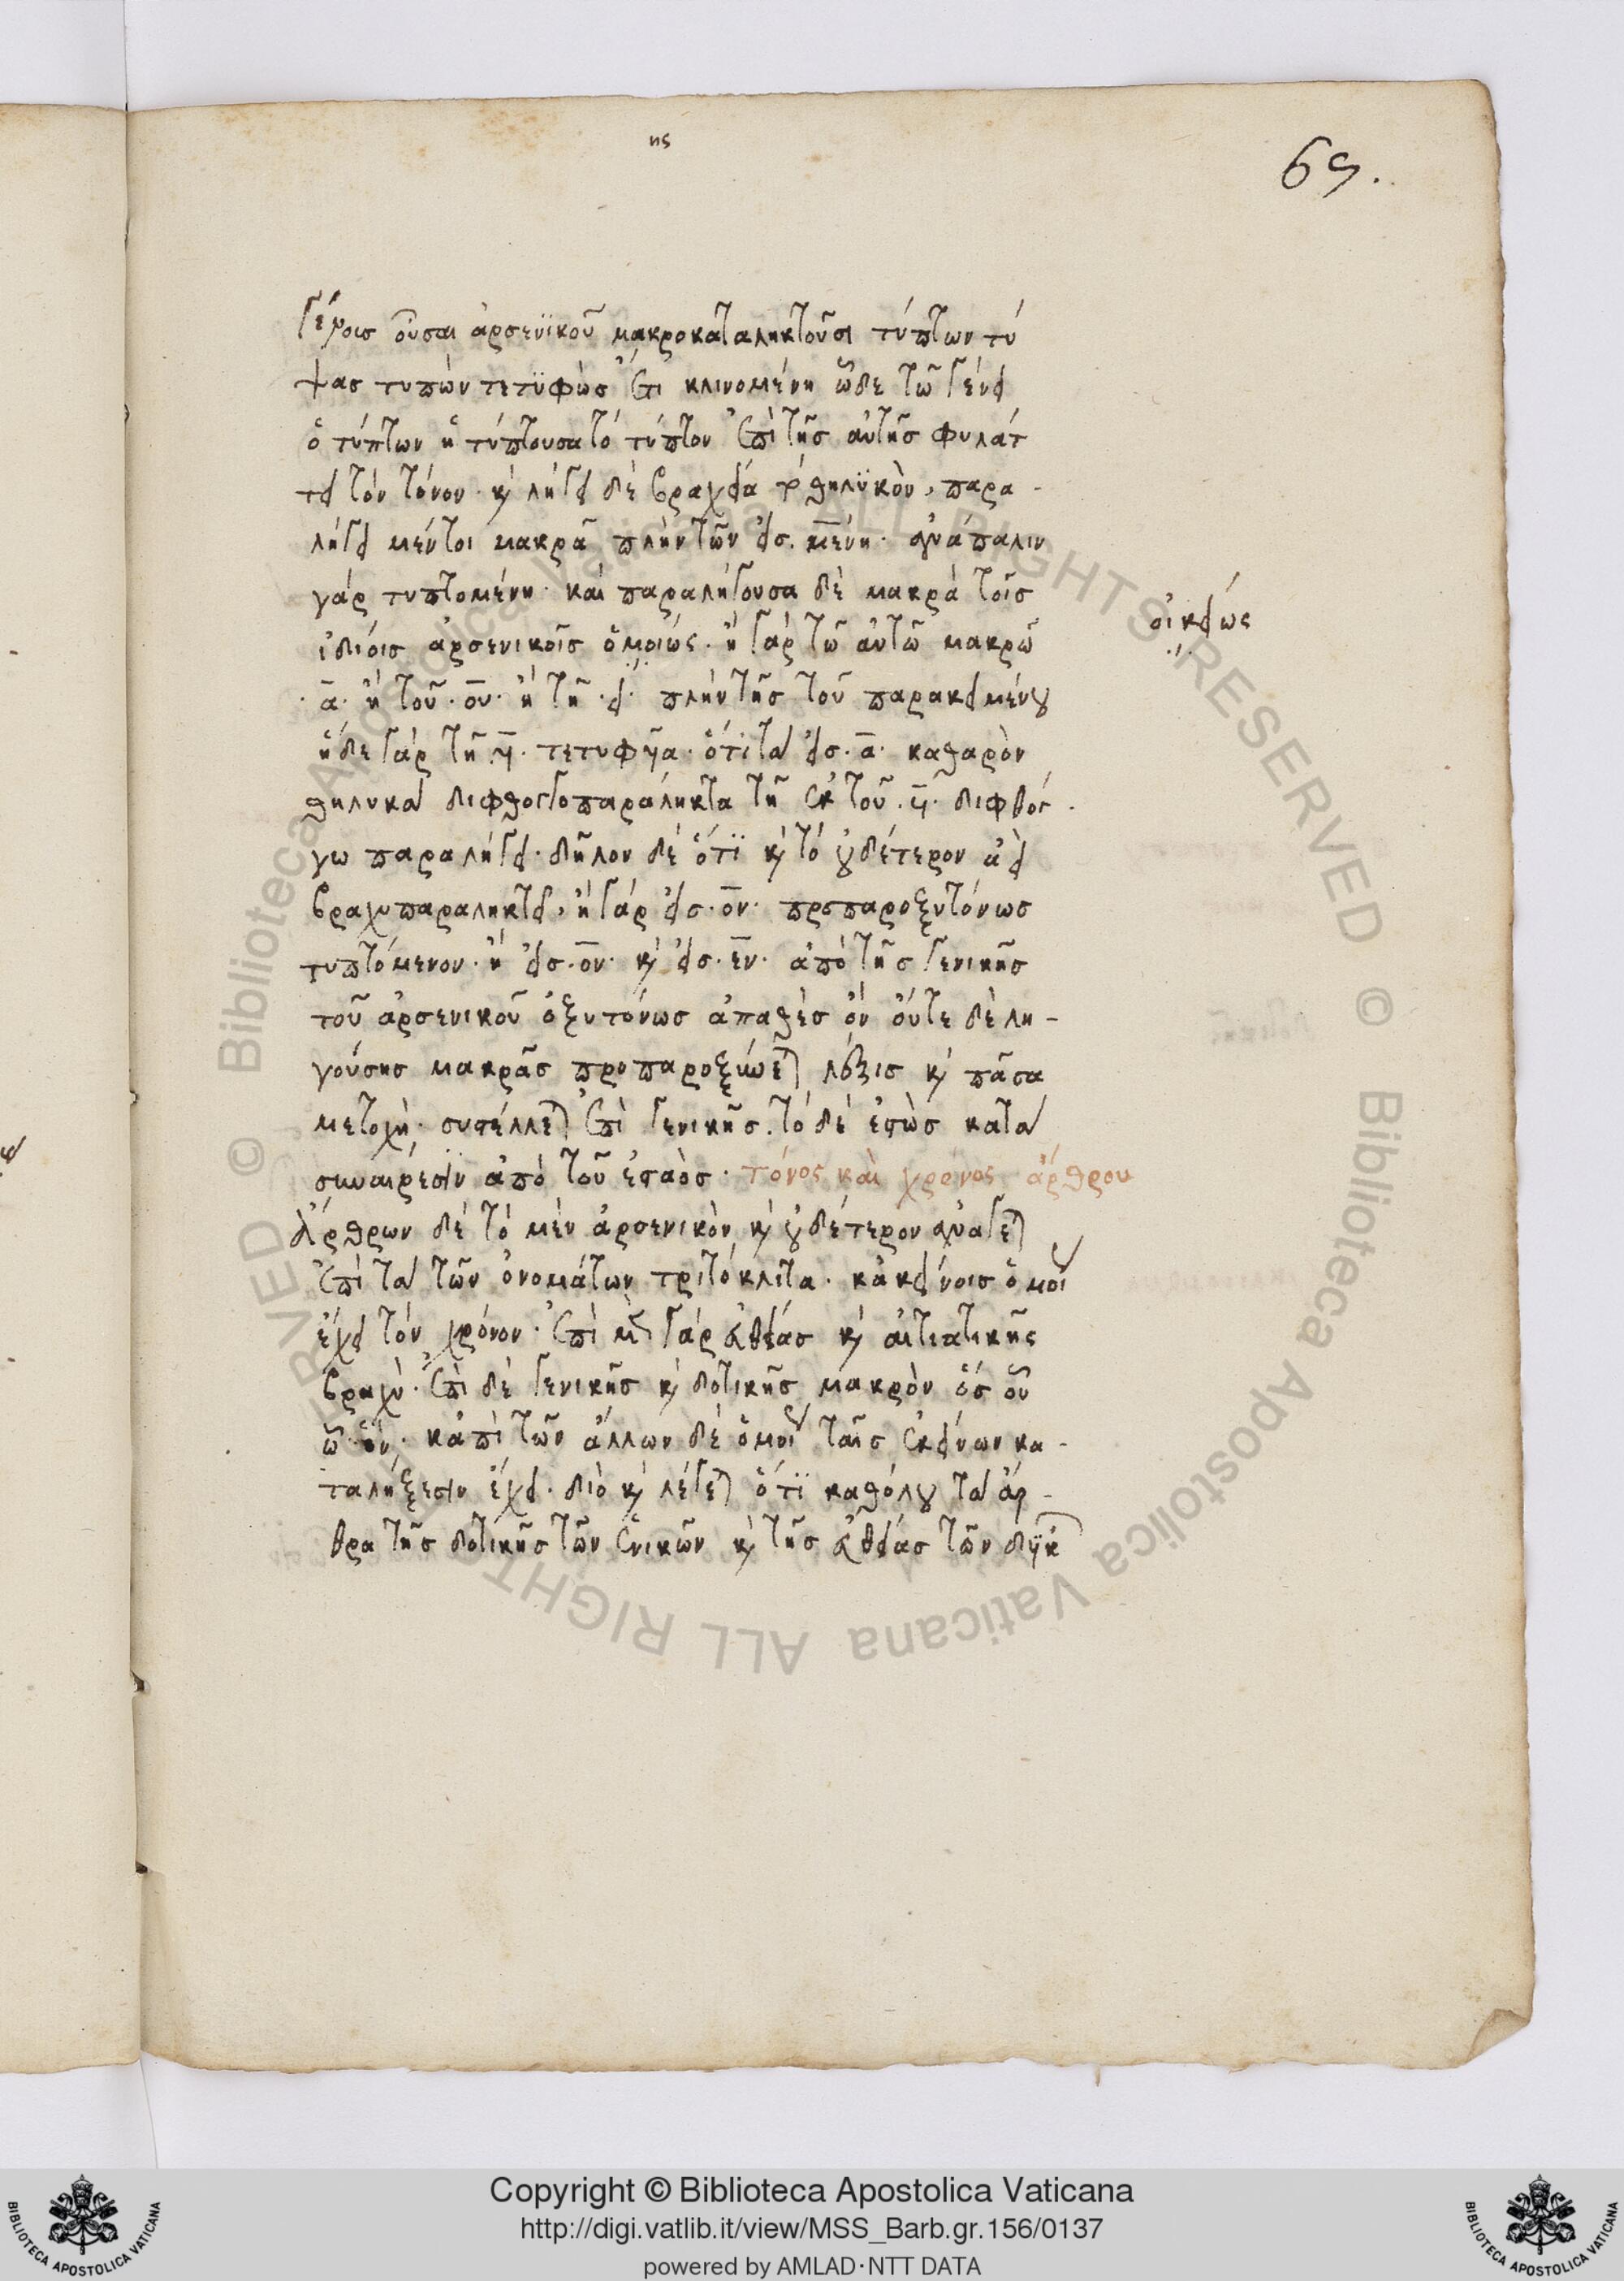 ης
69.
γένοις οὖσαι ἀρσενϊκοῦ μακροκαταληκτοῦσι τύπτων τύ
ψας τυπὼν τετϋφὼς ἔτι κλινομένη ὧδε τῶ γένει
ὁ τύπτων ἡ τύπτουσα τό τύπτον ἐπὶ τῆς αὐτῆς φυλάτ
τει τόν τόνον· κỳ λήγει δὲ βραχεῖα τὸ θηλϋκὸν, παρα -
λήγει μέντοι μακρᾶ πλὴν τῶν εἰς. μένη· ἀνάπαλιν
γάρ τυπτομένη· καὶ παραλήγουσα δὲ μακρὰ τοῖς
ἰδίοις ἀρσενικοῖς ὁμοιώς· ἢ γάρ τῶ αὐτῶ μακρῶ
οἰκείως
·α· ἢ τοῦ ·ου· ἢ τῆ ·ει· πλὴν τῆς τοῦ παρακειμένου
ἥδε γάρ τῆ υι· τετυφυῖα· ὅτι τὰ εἰς ·α· καθαρὸν
θηλυκὰ διφθογγοπαράληκτα τῆ ἐκ τοῦ ·υι· διφθόγ -
γω παραλήγει· δῆλον δὲ ὅτϊ κỳ τό οὐδέτερον ἀεὶ
βραχυπαραληκτεῖ, ἢ γάρ εἰς ·ον· προπαροξυτόνως
τυπτόμενον· ἢ εἰς ·ον· κỳ εἰς ·εν· ἀπό τῆς γενικῆς
τοῦ ἀρσενικοῦ ὀξυτόνως ἀπαθὲς ὂν οὔτε δὲ λη -
γούσης μακρᾶς προπαροξύνεται λέξις κỳ πᾶσα
μετοχὴ· συστέλλεται ἐπὶ γενικῆς· τὸ δὲ ἑστὼς κατὰ
συναιρέσιν ἀπό τοῦ ἑσταὸς· τόνος καὶ χρόνος ἄρθρου
Ἄρθρων δὲ τό μὲν ἀρσενικὸν κỳ οὐδέτερον ἀνάγεται
ἐπὶ τὰ τῶν ὀνομάτων τριτόκλιτα· κἀκείνοις ὁμοί
ἔχει τόν χρόνον· ἐπὶ μὲν γάρ εὐθείας κỳ αἰτιατικῆς
βραχὺ· ἐπὶ δὲ γενικῆς κỳ δοτικῆς μακρὸν ὅς οὗ
ὧ ὃν· κἀπὶ τῶν ἄλλων δὲ ὁμοί ταῖς ἐκείνων κα -
ταλήξεσιν ἔχει· διὸ κỳ λέγεται ὅτϊ καθόλου τὰ ἄρ -
θρα τῆς δοτικῆς τῶν ἑνικῶν κỳ τῆς εὐθείας τῶν δυϊκ
Copyright © Biblioteca Apostolica Vaticana
http://digi.vatlib.it/view/MSS_Barb.gr.156/0137
powered by AMLAD·NTT DATA
BIBLIOTECA APOSTOLICA VATICANA
BIBLIOTECA APOSTOLICA VATICANA
© Biblioteca Apostolica Vaticana ALL RIGHTS RESERVED © Biblioteca Apostolica Vaticana ALL RIGHTS RESERVED